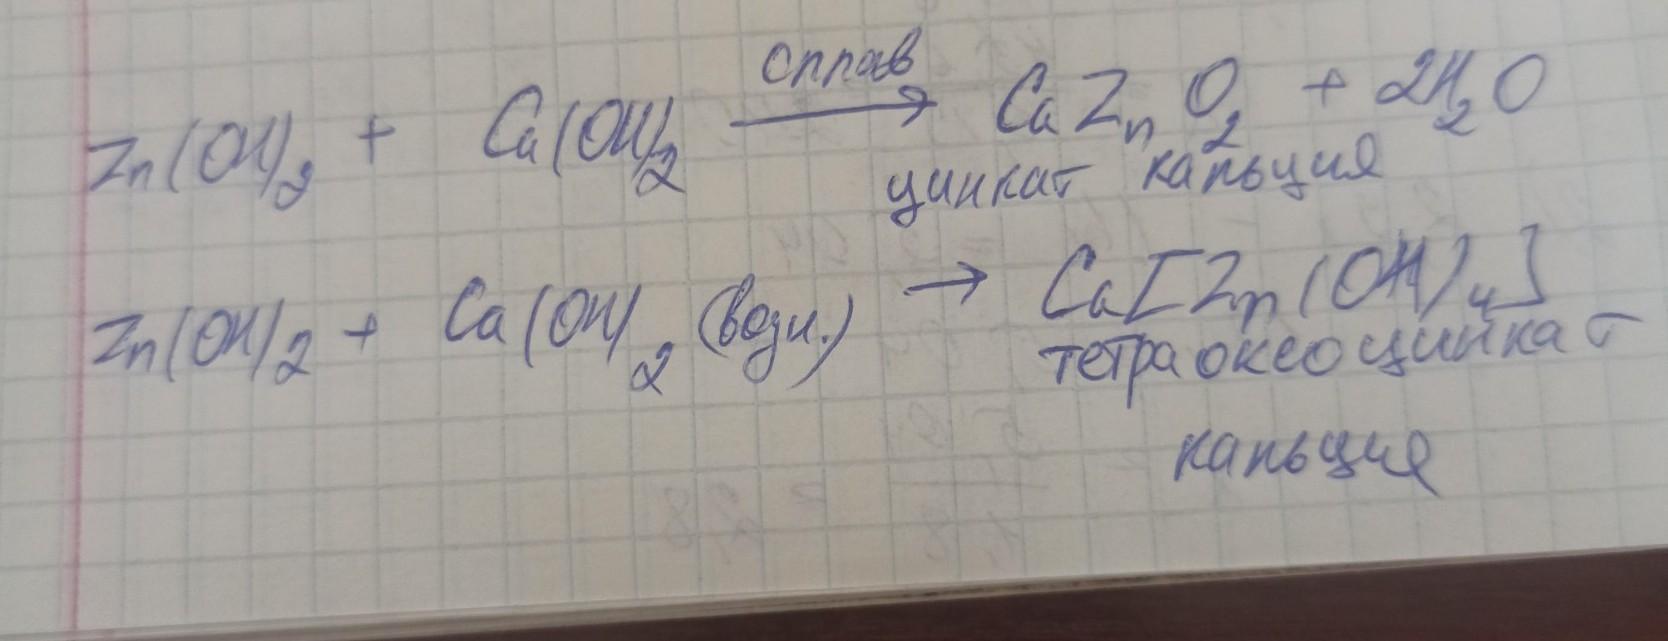 сплав
Zn(OH)2 + Ca(OH)2 → CaZnO2 + 2H2O
цинкат кальция
Zn(OH)2 + Ca(OH)2 (водн.) → Ca[Zn(OH)4]
тетраоксоцинкат
кальция